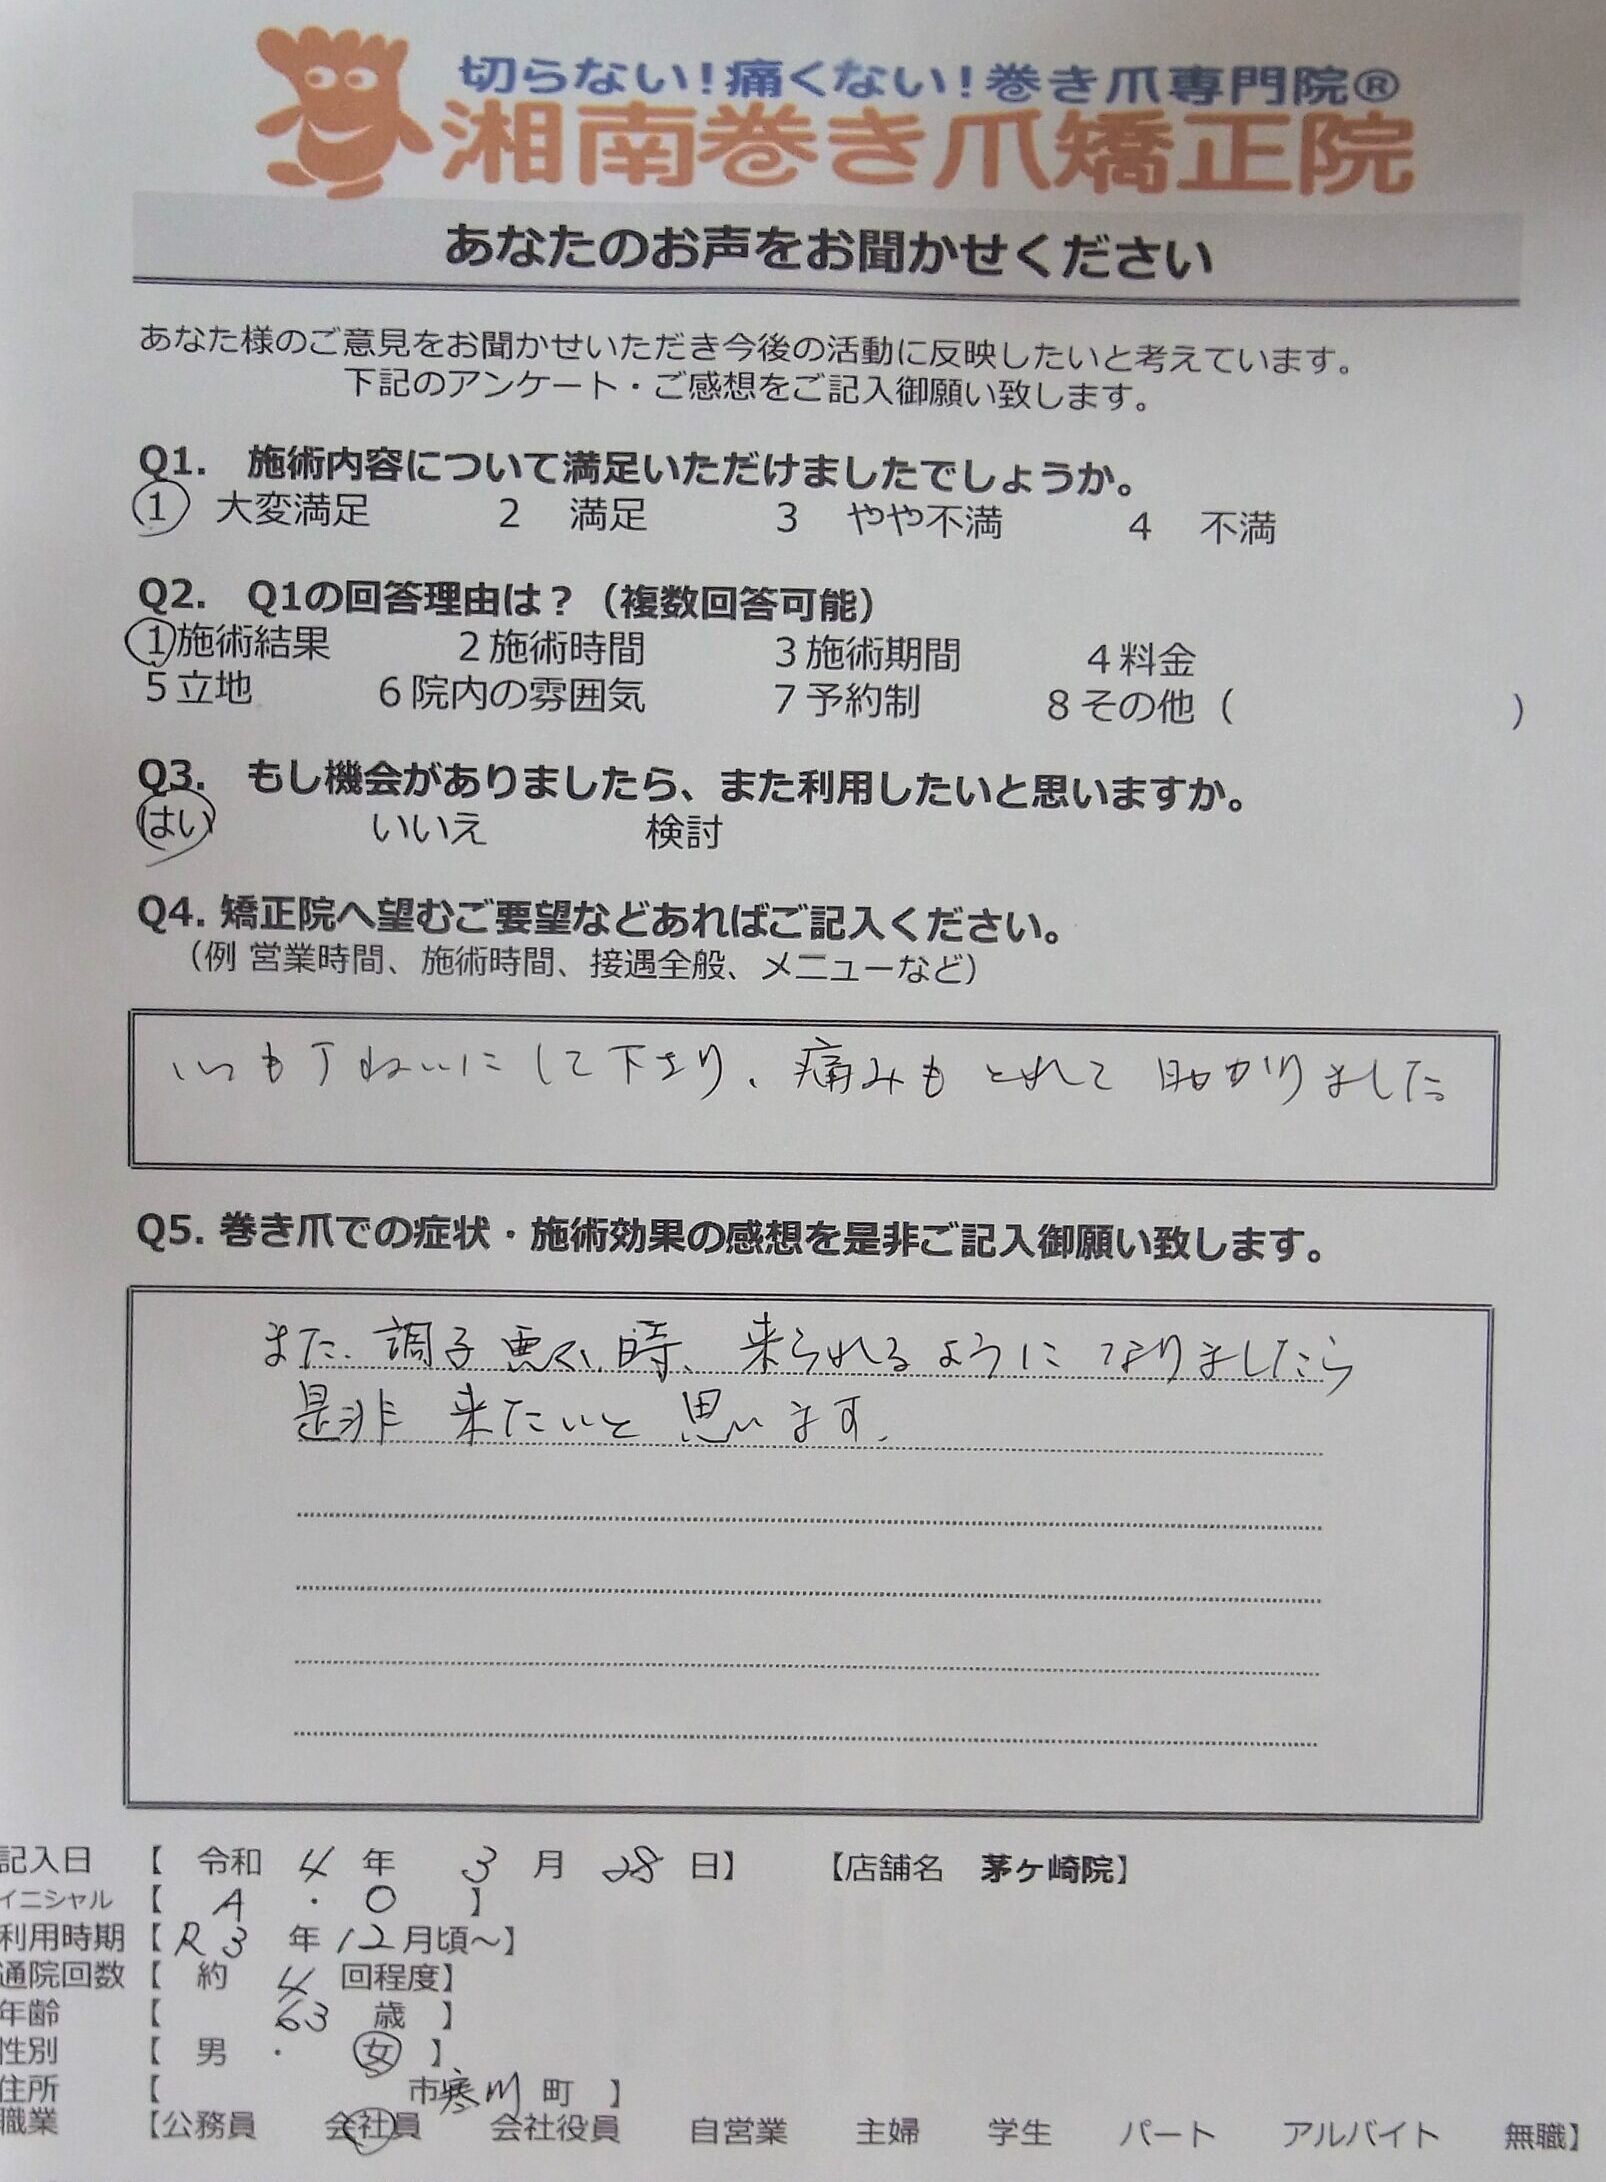 切らない！痛くない！巻き爪専門院®
湘南巻き爪矯正院
あなたのお声をお聞かせください
あなた様のご意見をお聞かせいただき今後の活動に反映したいと考えています。
下記のアンケート・ご感想をご記入御願い致します。
Q1. 施術内容について満足いただけましたでしょうか。
1 大変満足 2 満足 3 やや不満 4 不満
Q2. Q1の回答理由は？（複数回答可能）
1施術結果 2施術時間 3施術期間 4料金
5立地 6院内の雰囲気 7予約制 8その他（ ）
Q3. もし機会がありましたら、また利用したいと思いますか。
はい いいえ 検討
Q4. 矯正院へ望むご要望などあればご記入ください。
（例 営業時間、施術時間、接遇全般、メニューなど）
いつも丁ねいにして下さり、痛みもとれて助かりました
Q5. 巻き爪での症状・施術効果の感想を是非ご記入御願い致します。
また、調子悪い時、来られるようになりましたら
是非 来たいと思います。
記入日 【 令和 4 年 3 月 28 日】 【店舗名 茅ヶ崎院】
イニシャル 【 A ・ O 】
利用時期 【 R3 年 12 月頃～】
通院回数 【 約 4 回程度】
年齢 【 63 歳 】
性別 【 男 ・ 女 】
住所 【 市寒川町 】
職業 【公務員 会社員 会社役員 自営業 主婦 学生 パート アルバイト 無職】